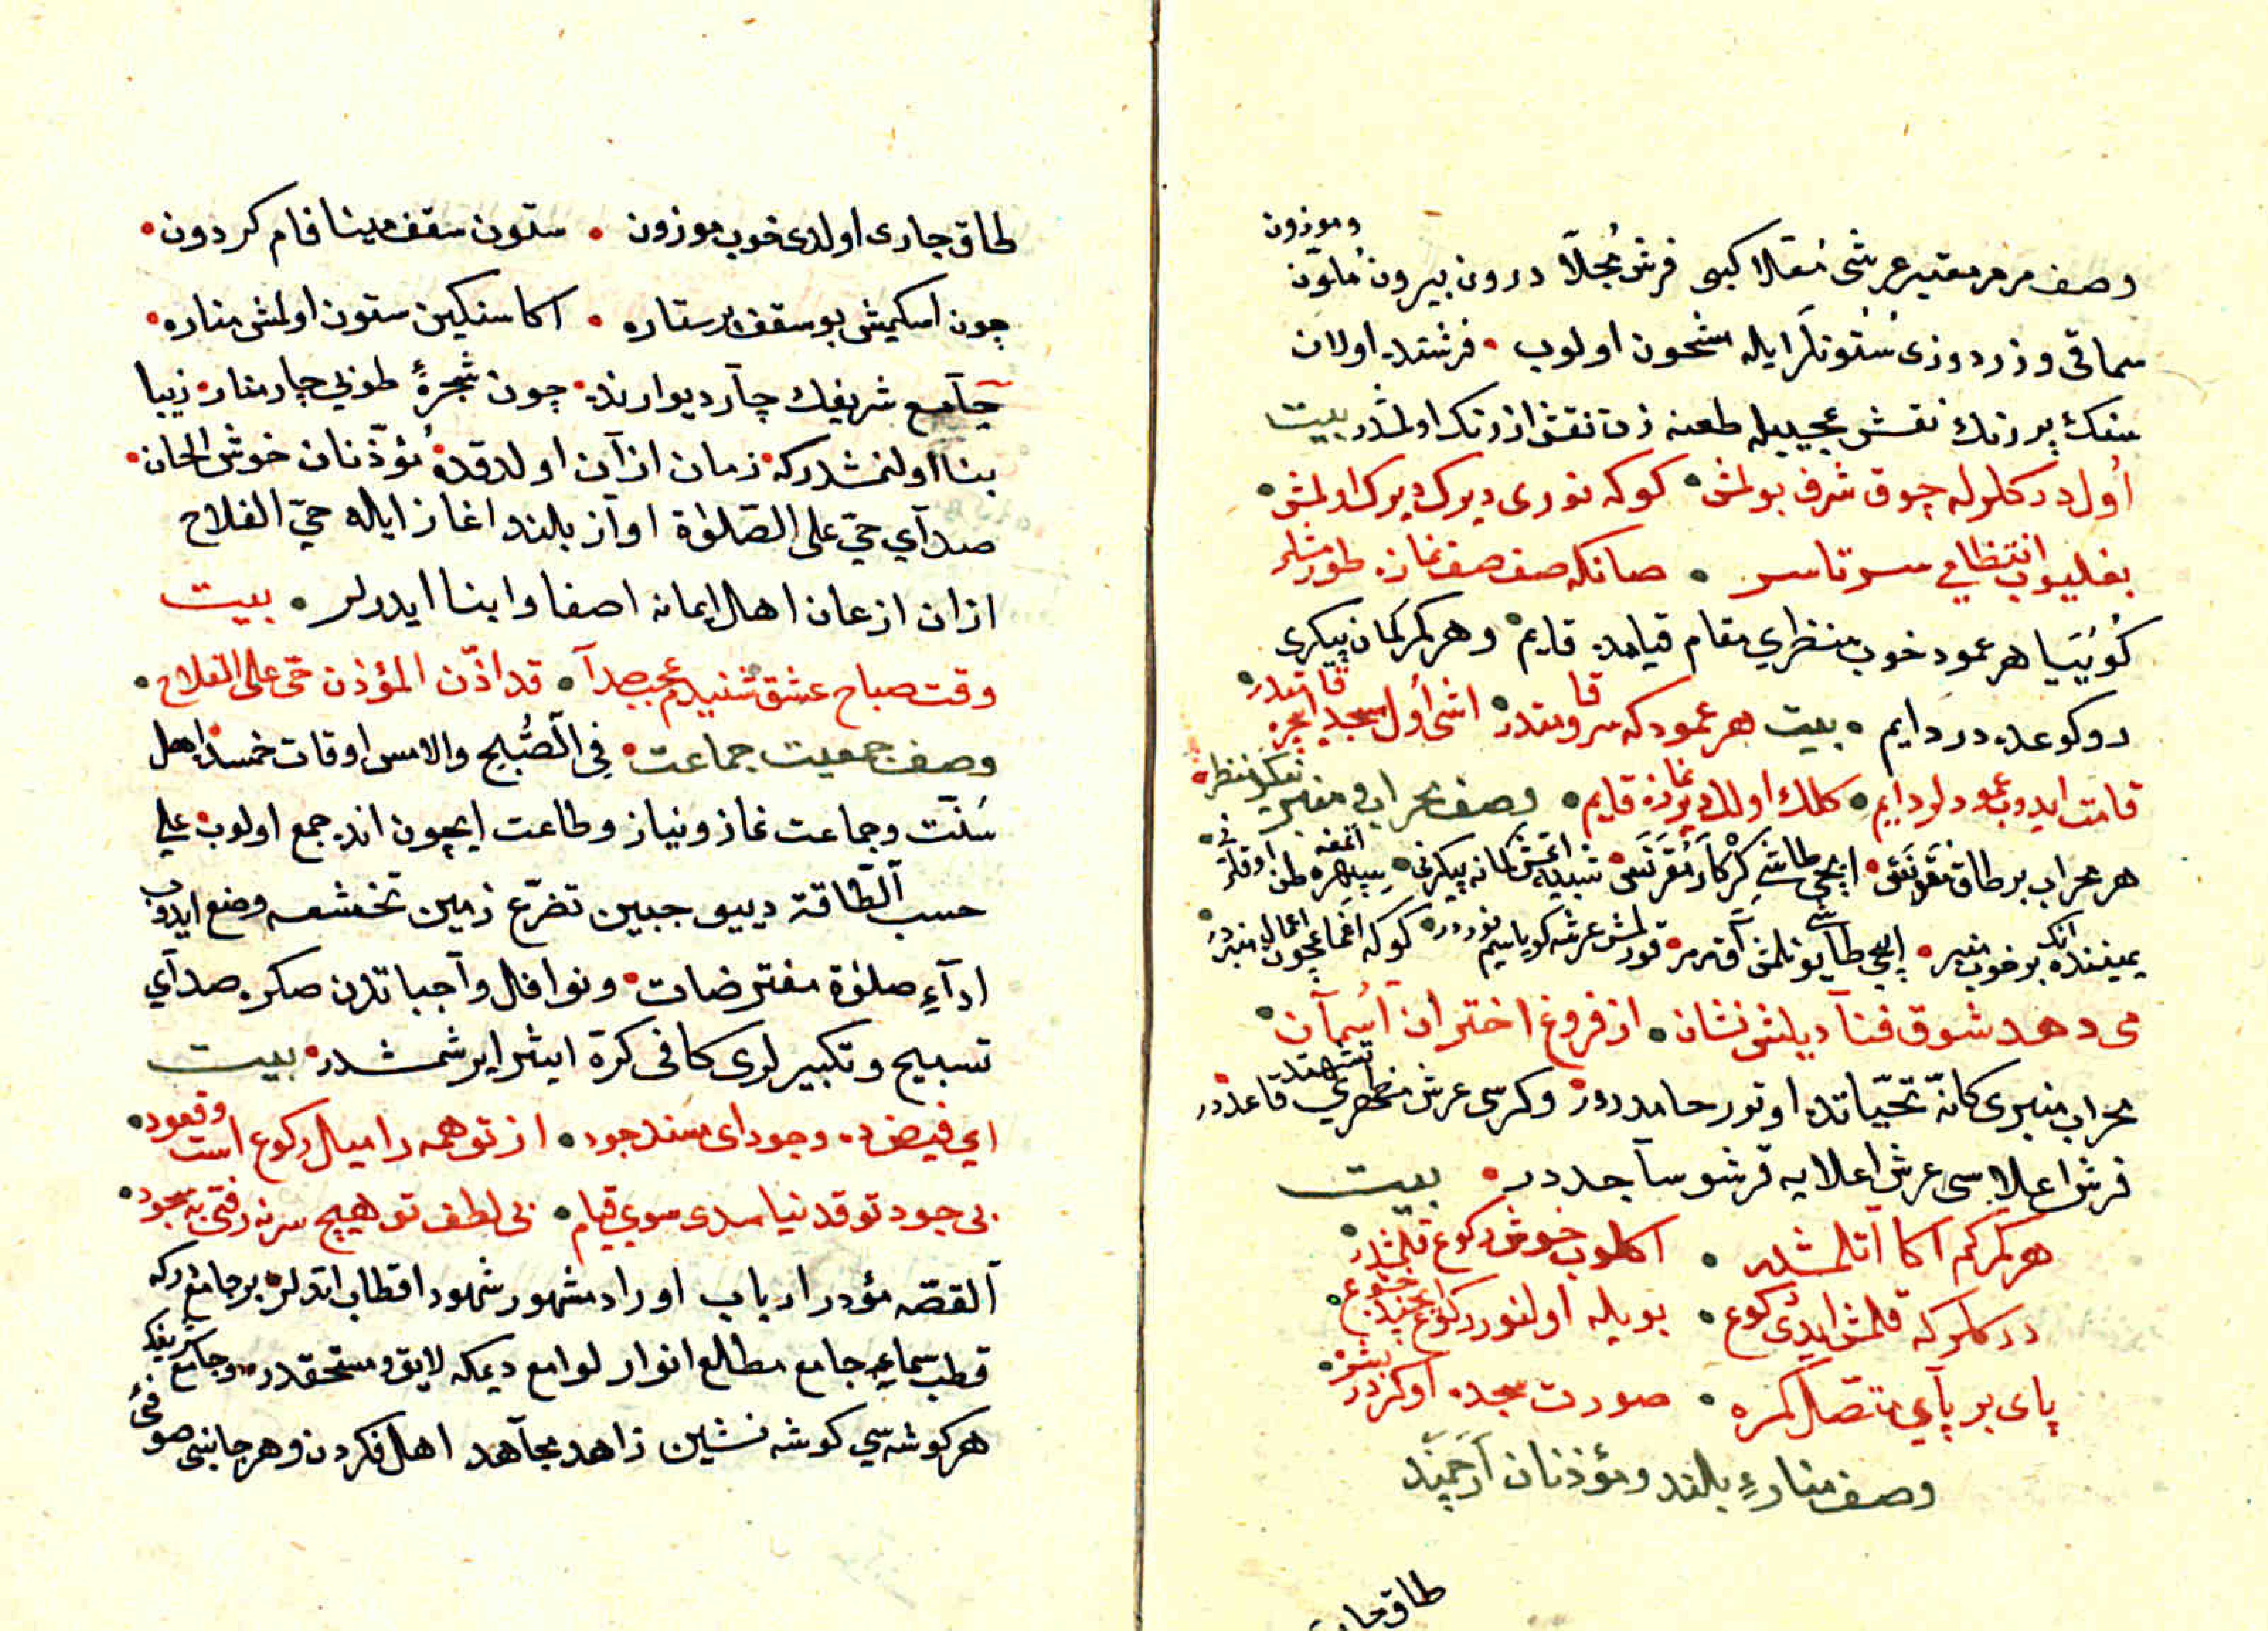 وموزون
وصف مرمر مقتبه عرشی مُعَلّا کبی فرش مُجلّا درون بیرون مُلوّن
سماقی و زردوزی سُتونلر ایله مشحون اولوب • فرشنده اولان
سنك پر رنك نقش عجیبیله طعنه زن نقش ارژنك اولمشدر بیت
اُول درکلرله چوق شرف بولمش • کوکه نوری دیرك دیرك اولمش •
بغلیوب انتظامی سرتاسر • صانکه صف صف نمازه طورمشلر
کُویَیا هر عمود خوب منظری مقام قیامده قایم • و هر کمر کمان پیکری
رکوعده در دایم • بیت هر عمود که سر و قامتدر • اشی اُول مسجد ایچره قامتدر •
قامت ایدوب عمودلر دایم • کلك اولدی نمازه قایم • وصف محراب و منبر
هر محراب بر طاق مقرنس • ایچی طاشی
یمیننده انك بر خوب منبر • ایچی طاشی
می دهد شوق فنآدیلش نشان • از فروغ اختران آسمآن •
محراب منبری کانّه تحیّاتده اوتورر حامددر • و کرسی عرش منظری تشهّده قاعددر
فرش اعلاسی عرش اعلایه قرشو ساجددر • بیت
هر کمر کم اکا آتلمشدر • اکلوب خوش رکوع قلمشدر
درکلر که قلمش ایدی رکوع • بویله اولنور رکوع
پای بر پآی متّصل کمره • صورت سجده
وصف مناره‌ءِ بلند و مؤذنان آرجمند
طاق جا
طاق جاری اولدی خوب موزون • ستون سقف مینا فام کردون •
چون اسکیمش بو سقف پرستاره • اکا سنکین ستون اولمش مناره •
جآمع شریفك چآر دیوارنده • چون شجرۀ طوبی چار مناره زیبا
بنآ اولنمشدر که • زمان اذآن اولدقده مُؤذّنان خوش الحان •
صدآی حیّ علی الصّلوٰة اوآز بلند اغاز ایله حیّ الفلاح
اذان اذعان اهل ایمانه اصغا و ابنا ایدرلر • بیت
وقت صباح عشق شنیدم عجب صدآ • قد اذّن المؤذن حیّ علی الفلاح •
وصف جمعیت جماعت • فی الصُّبْح والامس اوقات خمسده اهل
سُنّت و جماعت نماز و نیاز و طاعت ایچون انده جمع اولوب علی
حسب الطّاقة دیبو جبین تضرّع زمین تخشعه وضع ایدوب
ادآءِ صلوٰة مفترضات • و نوافل وآجباتدن صکره صدآی
تسبیح و تکبیرلری کافی کرة اثیر ایرشمشدر • بیت
ای فیض ده وجود ای مسند جود • از تو همه را میل رکوع است و قعود •
بی جود تو قد نیامدی سوی قیام • بی لطف تو هیچ سر نرفتی به سجود •
آلقصّه مؤدر ارباب اوراد مشهور شهود اقطاب اتدلر • بر جامعدر که
قطب سماءِ جامع مطالع انوار لوامع دیمکه لایق و مستحقدر • و جآمع شریفك
هر کوشه سی کوشه نشین زاهد مجآهد اهل فکردن و هر جانبی صوفئ